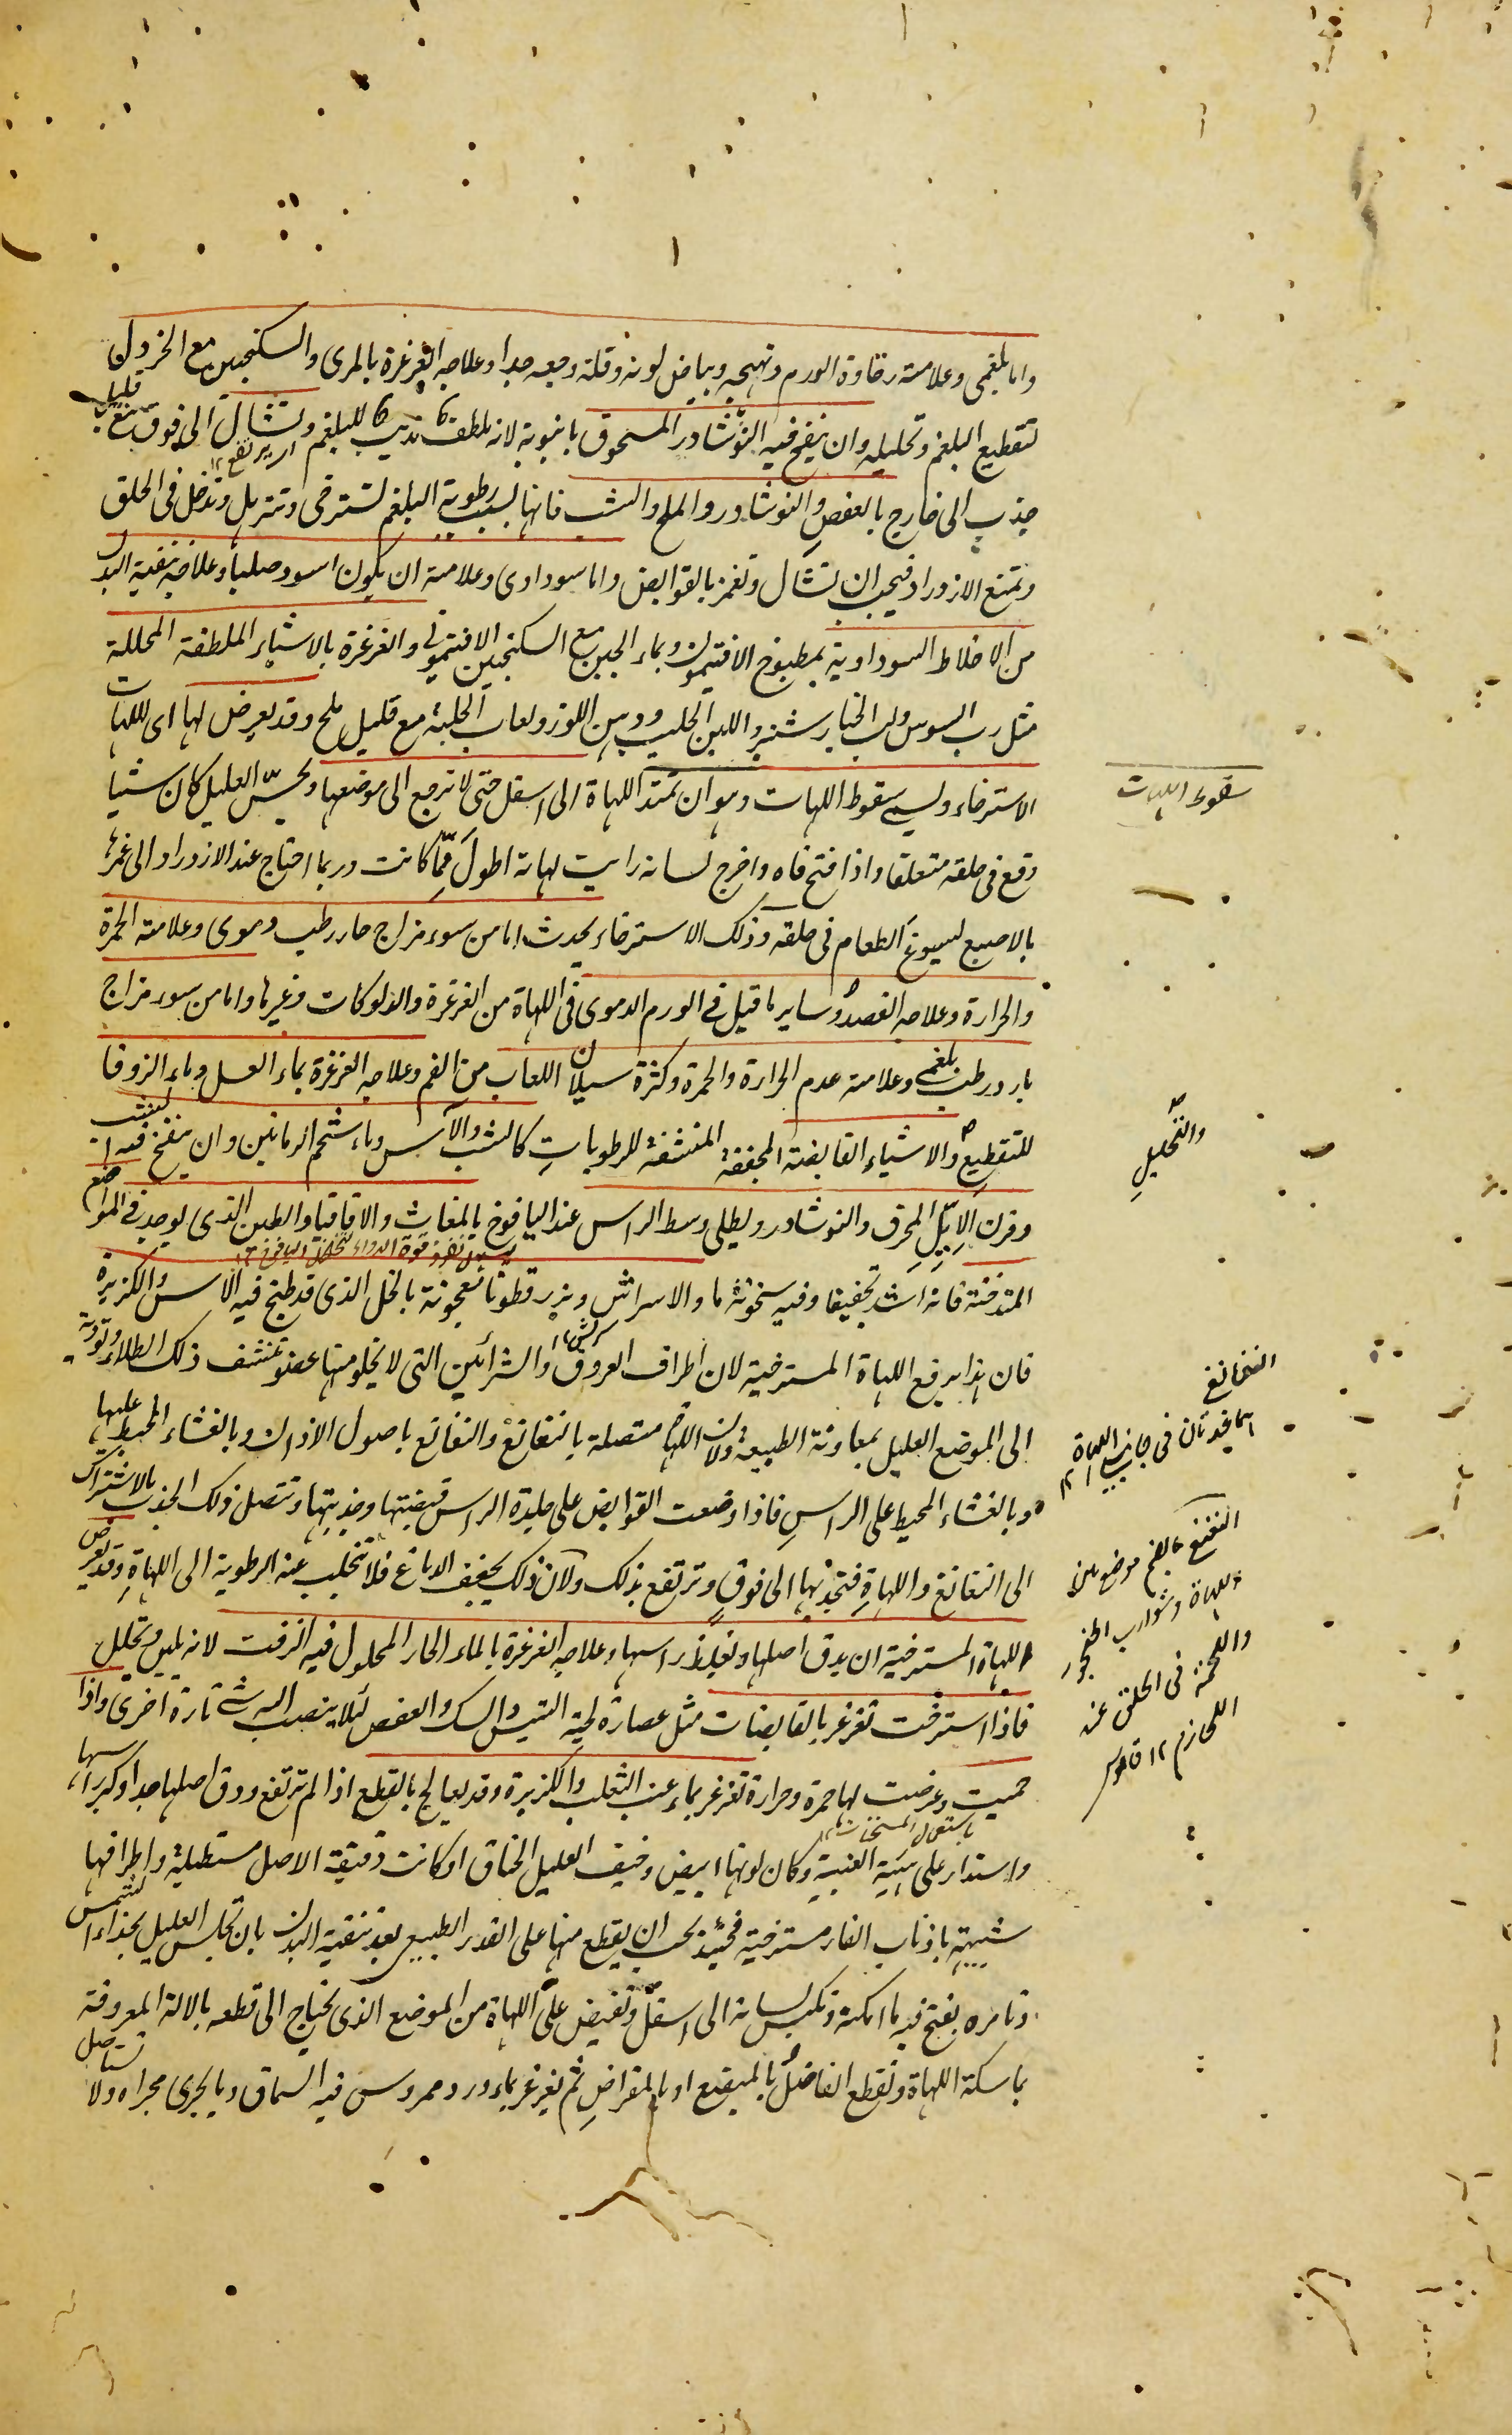 واما بلغمى وعلامته رخاوة الورم وتهيجه وبياض لونه وقلة وجعه جدا وعلاجه الغرغرة بالمرى والسكنجبين مع الخردل
لتقطيع البلغم وتحليله وان ينفخ فيه النوشادر المسحوق بانبوبة لانه يلطف تذيب للبلغم وتشال الى فوق
قليل
اى يرتفع ١٢
جذب الى خارج بالعفص والنوشادر والملح والشب فانها بسبب رطوبة البلغم تسترخى وتترهل وتدخل فى الحلق
وتمنع الازدراد فيجب ان تشال وتغمز بالقوابض واما سوداوى وعلامته ان يكون اسود صلبا وعلاجه تنقية البدن
من الاخلاط السوداوية بمطبوخ الافتيمون وبماء الجبن مع السكنجبين الافتيمونى والغرغرة بالاشياء الملطفة المحللة
مثل رب السوس ولب الخيار شنبر واللبن الحليب ودهن اللوز ولعاب الحلبة مع قليل ملح وقد يعرض لها اى للهات
الاسترخاء ويسمى سقوط اللهات وهو ان تمتد اللهاة الى اسفل حتى لا ترجع الى موضعها ويحسّ العليل كان شيا
سقوط اللهات
وقع فى حلقه متعلقا واذا فتح فاه واخرج لسانه رايت لهاته اطول ممّا كانت وربما احتاج عند الازدراد الى غمزها
بالاصبع ليسوغ الطعام فى حلقه وذلك الاسترخاء يحدث اما من سوء مزاج حار رطب دموى وعلامته الحمرة
والحرارة وعلاجه الفصد وساير ما قيل فى الورم الدموى فى اللهاة من الغرغرة والدلوكات وغيرها واما من سوء مزاج
بارد رطب بلغمى وعلامته عدم الحرارة والحمرة وكثرة سيلان اللعاب من الفم وعلاجه الغرغرة بماء العسل وماء الزوفا
للتقطيع والاشياء القابضة المجففة المنشفة للرطوبات كالشب والآس وماء شحم الرمانين وان ينفخ فيه الشب
والتحليلِ
وقرن الاِيّل المحرق والنوشادر ويطلى وسط الراس عند اليافوخ بالمغاث والاقاقيا والطين الذى يوجد فى المواضع
يسهل نفوذ قوة الدواء لتخلخل اليافوخ ١٢
المتدخنة فانه اشد تجفيفا وفيه سخونة ما والاسراش وبزر قطونا معجونة بالخل الذى قد طبخ فيه الآس والكزبرة
فان هذا يرفع اللهاة المسترخية لان اطراف العروق والشرائين التى لا يخلو منها عضو تنشف ذلك الطلاء وتوديه
الى الموضع العليل بمعاونة الطبيعة ولان اللهاة متصلة بالنغانغ والنغانغ باصول الاذان وبالغشاء المحيط عليها
النغانغ
هما غدتان فى جانبى اللهاة ١٢
وبالغشاء المحيط على الراس فاذا وضعت القوابض على جلدة الراس قبضتها وجذبتها وتتصل ذلك الجذب بالاشتراك
الى النغانغ واللهاة فتجذبها الى فوق وترتفع بذلك ولان ذلك يجفف الدماغ فلا تتحلب عنه الرطوبة الى اللهاة وقد يعرض
النغنغ بالضم موضع بين
اللهاة وشوارب الحنجور
واللحمة فى الحلق عند
اللهازم ١٢ قاموس
اللهاة المسترخية ان يدق اصلها ويغلظ راسها وعلاجه الغرغرة بالماء الحار المحلول فيه الزفت لانه يلين ويحلل
فاذا استرخت تغرغر بالقابضات مثل عصارة لحية التيس والسك والعفص لئلا ينصب اليه شئ تارة اخرى واذا
حميت وعرضت لها حمرة وحرارة تغرغر بماء عنب الثعلب والكزبرة وقد يعالج بالقطع اذا لم ترتفع ودق اصلها جدا وكبر راسها
باستعمال المسخنات ١٢
واستدار على هيئة العنبة وكان لونها ابيض وخيف العليل الخناق او كانت دقيقة الاصل مستطيلة واطرافها
شبيهة باذناب الفار مسترخية فحينئذ يجب ان يقطع منها على القدر الطبيعى بعد تنقية البدن بان يجلس العليل بحذاء الشمس
وتامره بفتح فيه ما امكنه وتكبس لسانه الى اسفل وتقبض على اللهاة من الموضع الذى يحتاج الى قطعه بالالة المعروفة
بماسكة اللهاة وتقطع الفاضل بالمبضع او بالمقراض ثم يغرغر بماء ورد ممروس فيه السماق وما يجرى مجراه ولا تستاصل